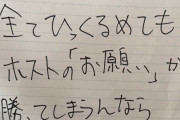 全てひっくるめても
ホストの「お願い」が
勝ってしまうんなら